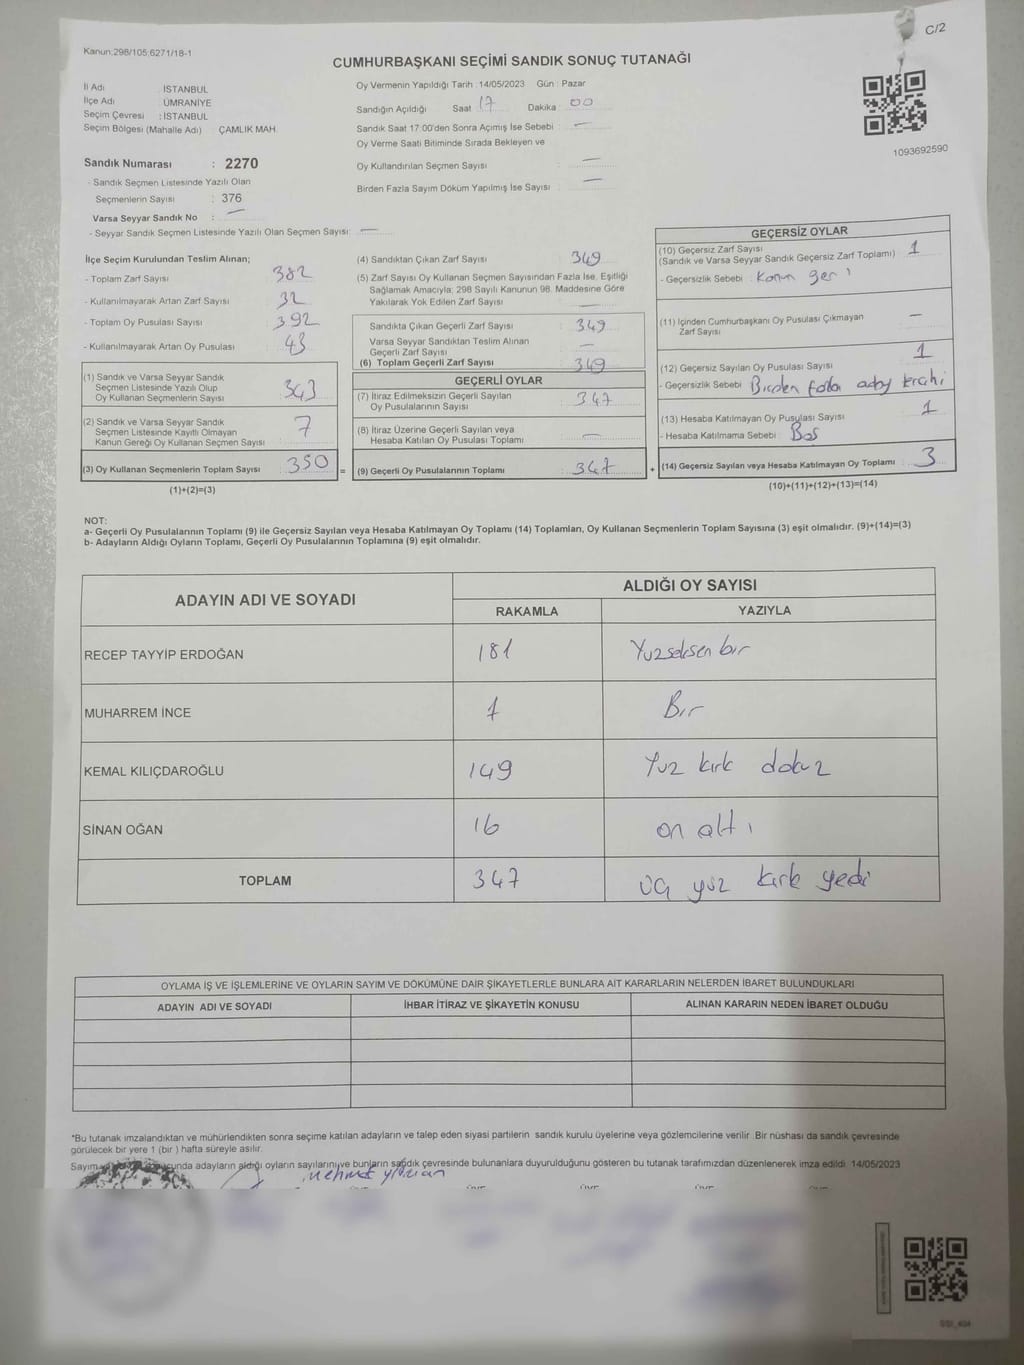 C/2
Kanun;298/105;6271/18-1
CUMHURBAŞKANI SEÇİMİ SANDIK SONUÇ TUTANAĞI
İl Adı : İSTANBUL
İlçe Adı : ÜMRANİYE
Seçim Çevresi : İSTANBUL
Seçim Bölgesi (Mahalle Adı) : ÇAMLIK MAH.
Oy Vermenin Yapıldığı Tarih : 14/05/2023 Gün : Pazar
Sandığın Açıldığı Saat 17 Dakika 00
Sandık Saat 17:00'den Sonra Açımış İse Sebebi : —
Oy Verme Saati Bitiminde Sırada Bekleyen ve
Oy Kullandırılan Seçmen Sayısı : —
Birden Fazla Sayım Döküm Yapılmış İse Sayısı : —
1093692590
Sandık Numarası : 2270
- Sandık Seçmen Listesinde Yazılı Olan
Seçmenlerin Sayısı : 376
Varsa Seyyar Sandık No : —
- Seyyar Sandık Seçmen Listesinde Yazılı Olan Seçmen Sayısı: —
İlçe Seçim Kurulundan Teslim Alınan;
- Toplam Zarf Sayısı : 382
- Kullanılmayarak Artan Zarf Sayısı : 32
- Toplam Oy Pusulası Sayısı : 392
- Kullanılmayarak Artan Oy Pusulası : 43
(1) Sandık ve Varsa Seyyar Sandık
Seçmen Listesinde Yazılı Olup
Oy Kullanan Seçmenlerin Sayısı : 343
(2) Sandık ve Varsa Seyyar Sandık
Seçmen Listesinde Kayıtlı Olmayan
Kanun Gereği Oy Kullanan Seçmen Sayısı : 7
(3) Oy Kullanan Seçmenlerin Toplam Sayısı : 350 =
(1)+(2)=(3)
(4) Sandıktan Çıkan Zarf Sayısı : 349
(5) Zarf Sayısı Oy Kullanan Seçmen Sayısından Fazla İse, Eşitliği
Sağlamak Amacıyla; 298 Sayılı Kanunun 98. Maddesine Göre
Yakılarak Yok Edilen Zarf Sayısı : —
Sandıkta Çıkan Geçerli Zarf Sayısı : 349
Varsa Seyyar Sandıktan Teslim Alınan
Geçerli Zarf Sayısı : —
(6) Toplam Geçerli Zarf Sayısı : 349
GEÇERLİ OYLAR
(7) İtiraz Edilmeksizin Geçerli Sayılan
Oy Pusulalarının Sayısı : 347
(8) İtiraz Üzerine Geçerli Sayılan veya
Hesaba Katılan Oy Pusulası Toplamı : —
(9) Geçerli Oy Pusulalarının Toplamı : 347 +
GEÇERSİZ OYLAR
(10) Geçersiz Zarf Sayısı : 1
(Sandık ve Varsa Seyyar Sandık Geçersiz Zarf Toplamı)
- Geçersizlik Sebebi :
(11) İçinden Cumhurbaşkanı Oy Pusulası Çıkmayan
Zarf Sayısı : —
(12) Geçersiz Sayılan Oy Pusulası Sayısı : 1
- Geçersizlik Sebebi : Birden fazla aday tercihi
(13) Hesaba Katılmayan Oy Pusulası Sayısı : 1
- Hesaba Katılmama Sebebi : Boş
(14) Geçersiz Sayılan veya Hesaba Katılmayan Oy Toplamı : 3
(10)+(11)+(12)+(13)=(14)
NOT:
a- Geçerli Oy Pusulalarının Toplamı (9) ile Geçersiz Sayılan veya Hesaba Katılmayan Oy Toplamı (14) Toplamları, Oy Kullanan Seçmenlerin Toplam Sayısına (3) eşit olmalıdır. (9)+(14)=(3)
b- Adayların Aldığı Oyların Toplamı, Geçerli Oy Pusulalarının Toplamına (9) eşit olmalıdır.
ADAYIN ADI VE SOYADI
ALDIĞI OY SAYISI
RAKAMLA YAZIYLA
RECEP TAYYİP ERDOĞAN 181 Yuzseksen bir
MUHARREM İNCE 1 Bir
KEMAL KILIÇDAROĞLU 149 Yuz kırk dokuz
SİNAN OĞAN 16 on altı
TOPLAM 347 üç yüz kırk yedi
OYLAMA İŞ VE İŞLEMLERİNE VE OYLARIN SAYIM VE DÖKÜMÜNE DAİR ŞİKAYETLERLE BUNLARA AİT KARARLARIN NELERDEN İBARET BULUNDUKLARI
ADAYIN ADI VE SOYADI İHBAR İTİRAZ VE ŞİKAYETİN KONUSU ALINAN KARARIN NEDEN İBARET OLDUĞU
*Bu tutanak imzalandıktan ve mühürlendikten sonra seçime katılan adayların ve talep eden siyasi partilerin sandık kurulu üyelerine veya gözlemcilerine verilir. Bir nüshası da sandık çevresinde
görülecek bir yere 1 (bir ) hafta süreyle asılır.
Sayım adayların aldığı oyların sayılarını ve bunların sandık çevresinde bulunanlara duyurulduğunu gösteren bu tutanak tarafımızdan düzenlenerek imza edildi. 14/05/2023